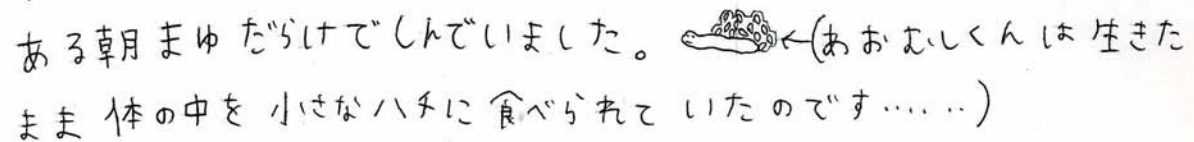 ある朝まゆだらけでしんでいました。←(あおむしくんは生きた
まま体の中を小さなハチに食べられていたのです……)